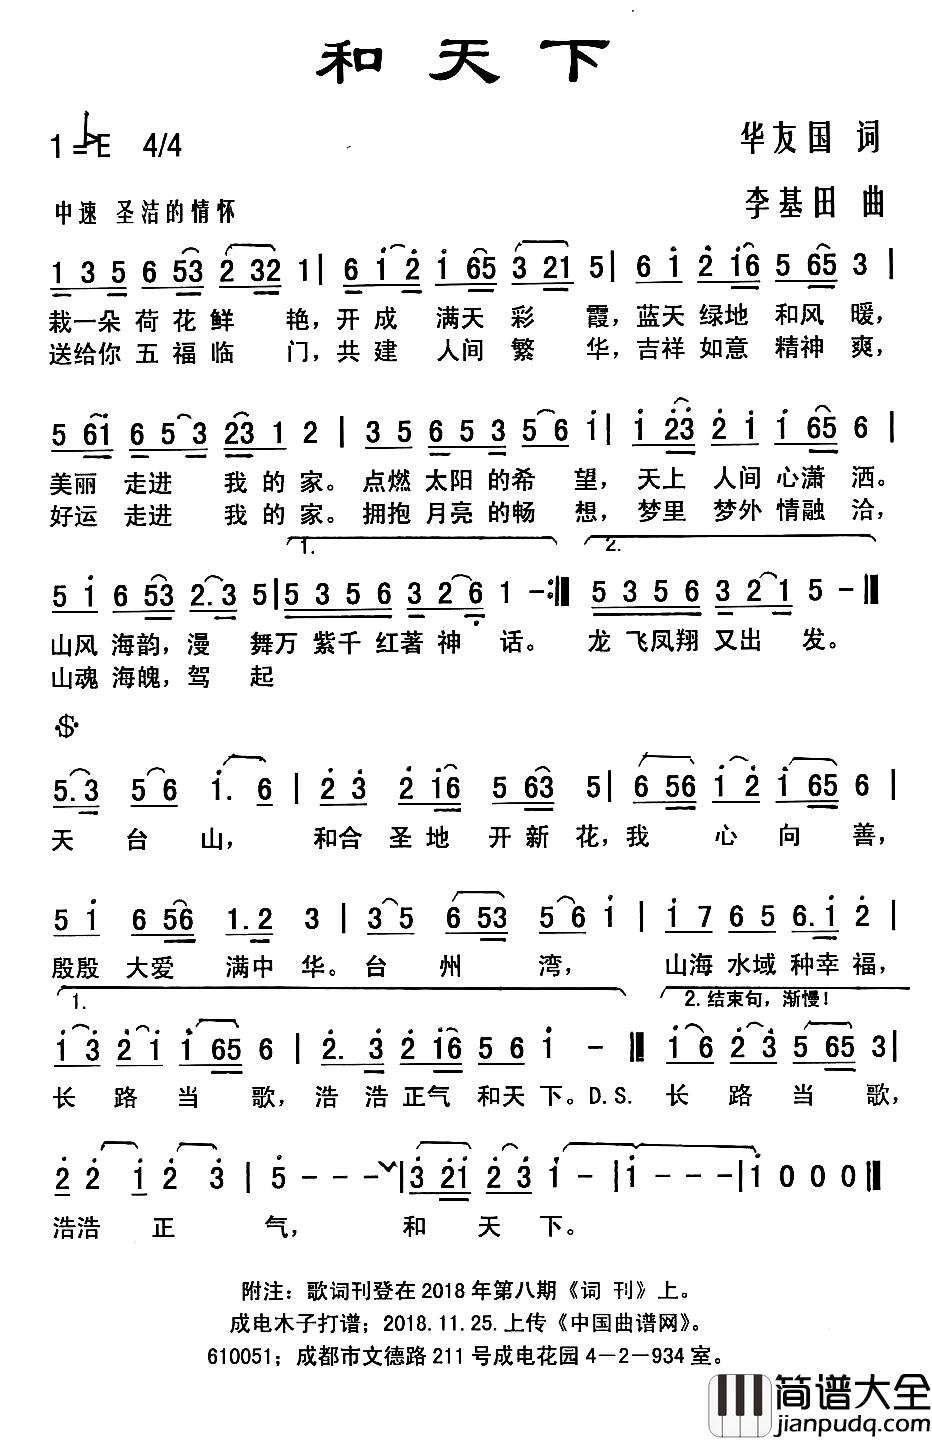 和天下
1=♭E 4/4
华友国 词
中速 圣洁的情怀
李基田 曲
1 3 5 6 53 2 32 1 | 6 1 2 1 65 3 21 5 | 6 1 2 16 5 65 3 |
栽一朵 荷 花 鲜 艳，开 成 满天 彩 霞，蓝天 绿地 和风 暖，
送给你 五 福 临 门，共 建 人间 繁 华，吉祥 如意 精神 爽，
5 61 6 5 3 23 1 2 | 3 5 6 5 3 5 6 1 | 1 23 2 1 1 65 6 |
美丽 走进 我 的 家。点燃 太阳 的希 望，天上 人间 心潇 洒。
好运 走进 我 的 家。拥抱 月亮 的畅 想，梦里 梦外 情融 洽，
1. 2.
5 1 6 53 2.3 5 | 5 3 5 6 3 2 6 1 - :| 5 3 5 6 3 2 1 5 - |
山风 海韵，漫 舞万 紫千 红著 神 话。 龙 飞凤翔 又出 发。
山魂 海魄，驾 起
5.3 5 6 1. 6 | 2 3 2 16 5 63 5 | 6 56 1 2 1 65 6 |
天 台 山， 和合 圣 地 开 新 花，我 心 向 善，
5 1 6 56 1.2 3 | 3 5 6 53 5 6 1 | 1 7 6 5 6.1 2 |
殷殷 大爱 满中 华。台 州 湾， 山海 水域 种幸 福，
1. 2. 结束句，渐慢！
1 3 2 1 1 65 6 | 2. 3 2 16 5 6 1 - | 1 6 2 3 5 65 3 |
长 路 当 歌，浩 浩 正气 和天 下。D.S. 长 路 当 歌，
2 2 1 2 3 | 5 - - - | 3 21 2 3 1 - | 1 - - - | 1 0 0 0 |
浩浩 正 气， 和 天 下。
附注：歌词刊登在2018年第八期《词 刊》上。
成电木子打谱；2018.11.25.上传《中国曲谱网》。
610051；成都市文德路211号成电花园4－2－934室。
简谱大全
jianpudq.com